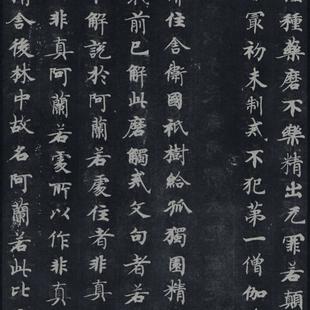 種藥磨不樂精出无罪若顛
冣初未制戒不犯苐一僧伽
住舍衛國祇樹給孤獨園精
前已解此磨觸戒文句者若
解說於阿蘭若處住者非真
非真阿蘭若處所以作非真
舍後林中故名阿蘭若此比